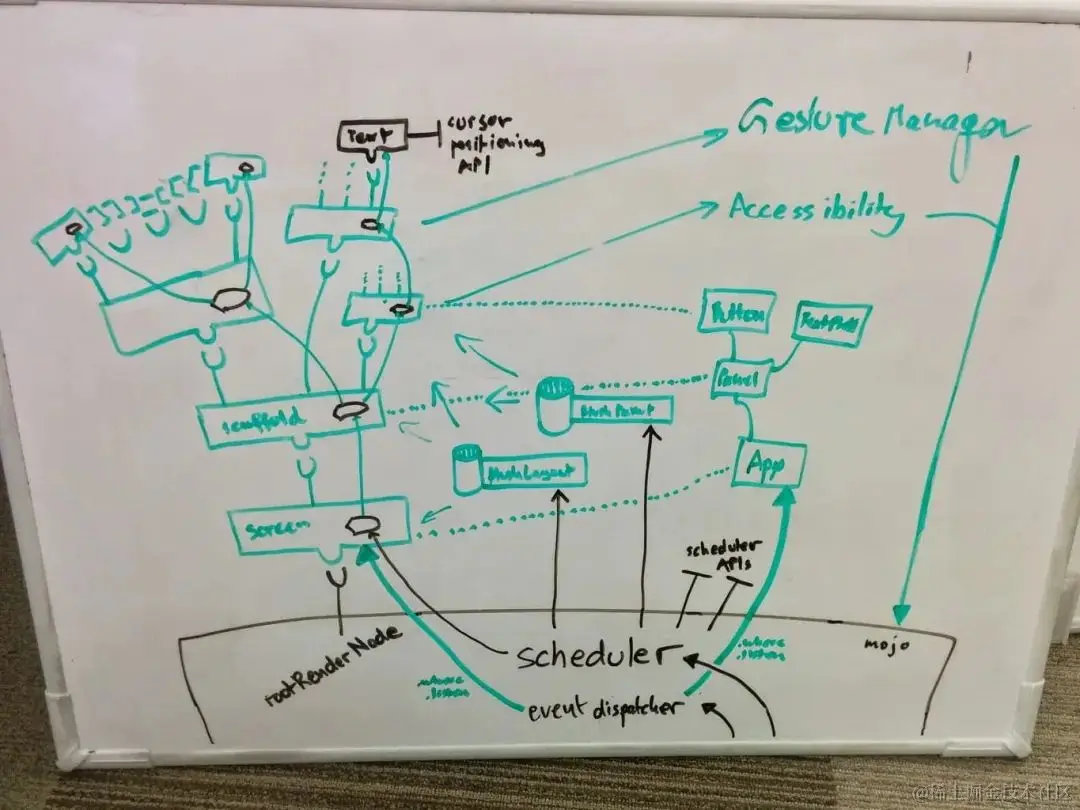 Gesture Manager
Text
cursor
positioning
API
Accessibility
Button
Panel
scaffold
App
screen
scheduler
APIs
rootRenderNode
scheduler
mojo
.where
.listen
.where
.listen
event dispatcher
@稀土掘金技术社区